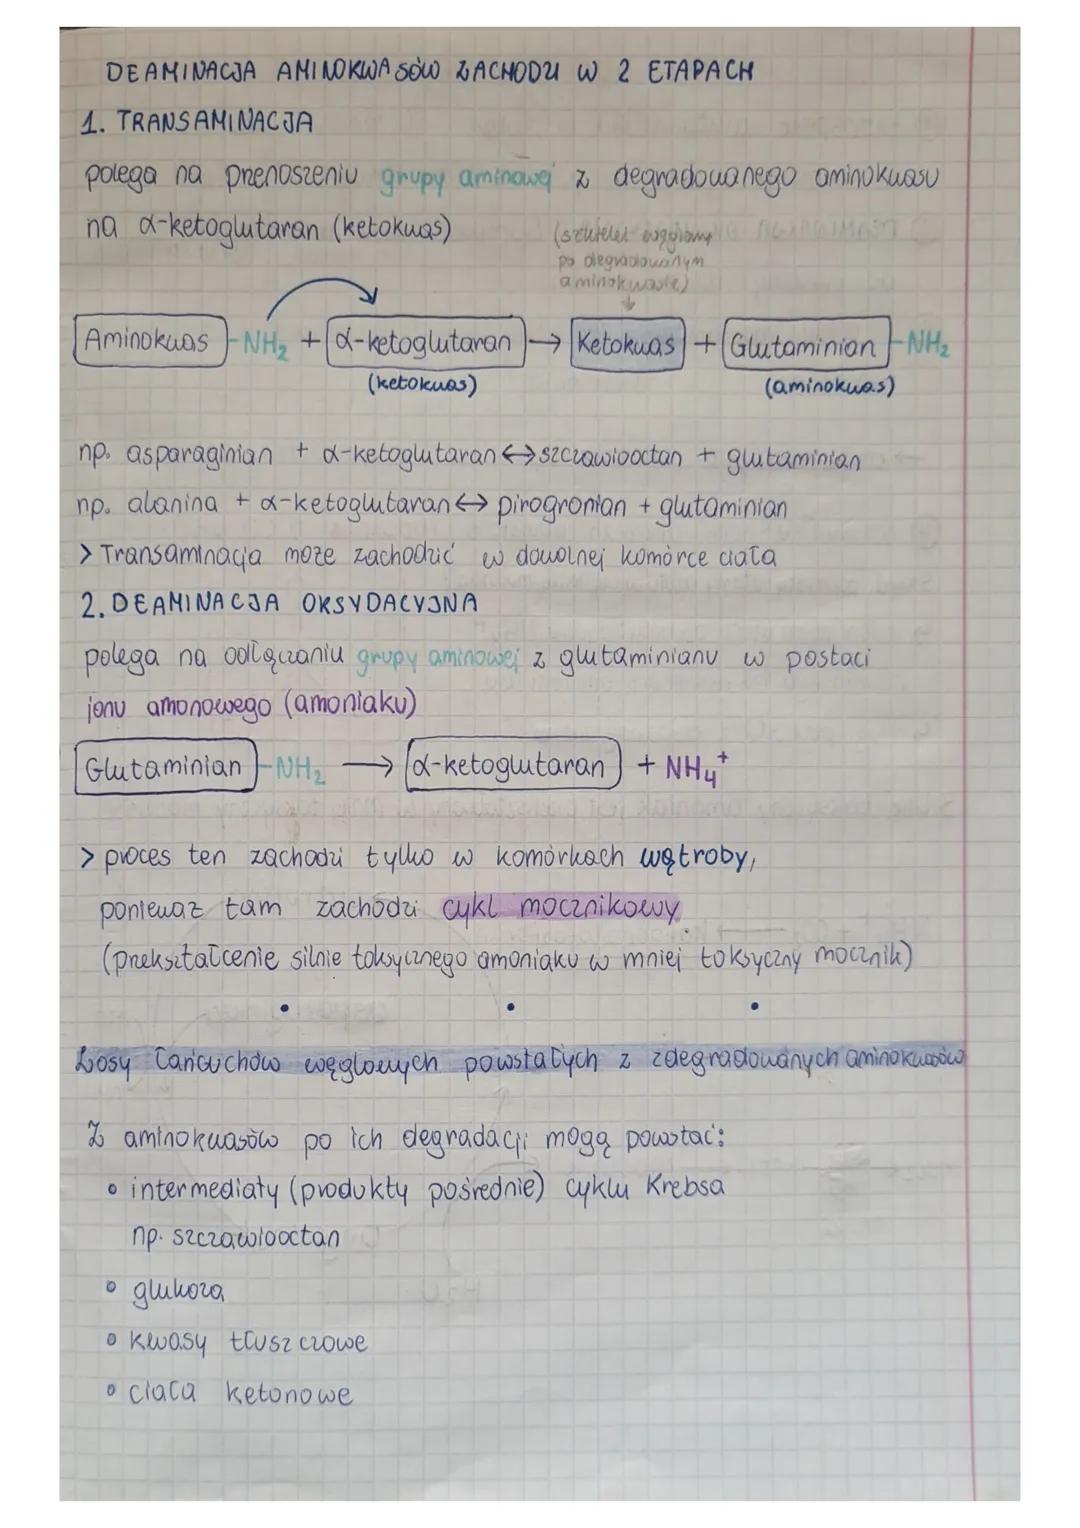 DEAMINACJA AMINOKWASÓW ZACHODZI W 2 ETAPACH
1. TRANSAMINACJA
polega na przenoszeniu grupy aminowej z degradowanego aminokwasu
na α-ketoglutaran (ketokwas)
(szkielet węglowy
po degradowanym
aminokwasie)
Aminokwas -NH₂ + α-ketoglutaran → Ketokwas + Glutaminian -NH₂
(ketokwas) (aminokwas)
np. asparaginian + α-ketoglutaran ↔ szczawiooctan + glutaminian
np. alanina + α-ketoglutaran ↔ pirogronian + glutaminian
> Transaminacja może zachodzić w dowolnej komórce ciała
2. DEAMINACJA OKSYDACYJNA
polega na odłączaniu grupy aminowej z glutaminianu w postaci
jonu amonowego (amoniaku)
Glutaminian -NH₂ → α-ketoglutaran + NH₄⁺
> proces ten zachodzi tylko w komórkach wątroby,
ponieważ tam zachodzi cykl mocznikowy
(przekształcenie silnie toksycznego amoniaku w mniej toksyczny mocznik)
Losy łańcuchów węglowych powstałych z zdegradowanych aminokwasów
Z aminokwasów po ich degradacji mogą powstać:
• intermediaty (produkty pośrednie) cyklu Krebsa
np. szczawiooctan
• glukoza
• kwasy tłuszczowe
• ciała ketonowe